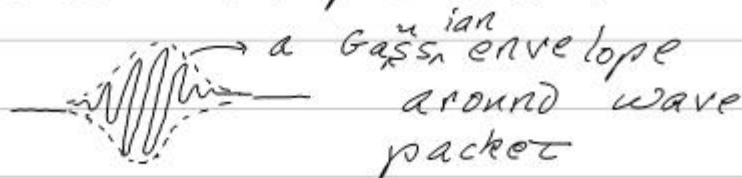 a Gaussian envelope
around wave
packet